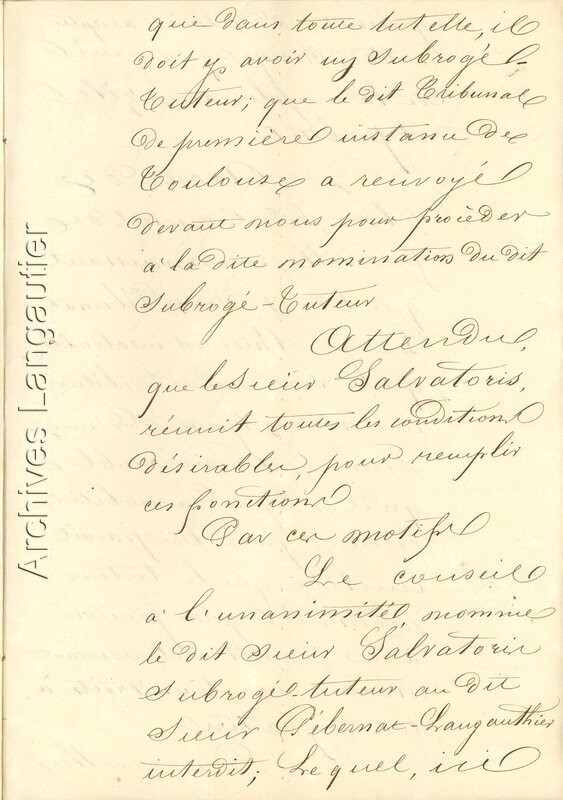 que dans toute tutelle, il
doit y avoir un subrogé-
Tuteur; que le dit Tribunal
de première instance de
Toulouse a renvoyé
devant nous pour procèder
à la dite nomination du dit
subrogé-Tuteur
Attendu,
que le sieur Salvatoris,
réunit toutes les conditions
désirables, pour remplir
ces fonctions
Par ces motifs
Le conseil
à l'unanimité, nomme
le dit sieur Salvatoris
subrogé-tuteur au dit
sieur Pébernat-Langauthier
interdit; Lequel, ici
Archives Langautier